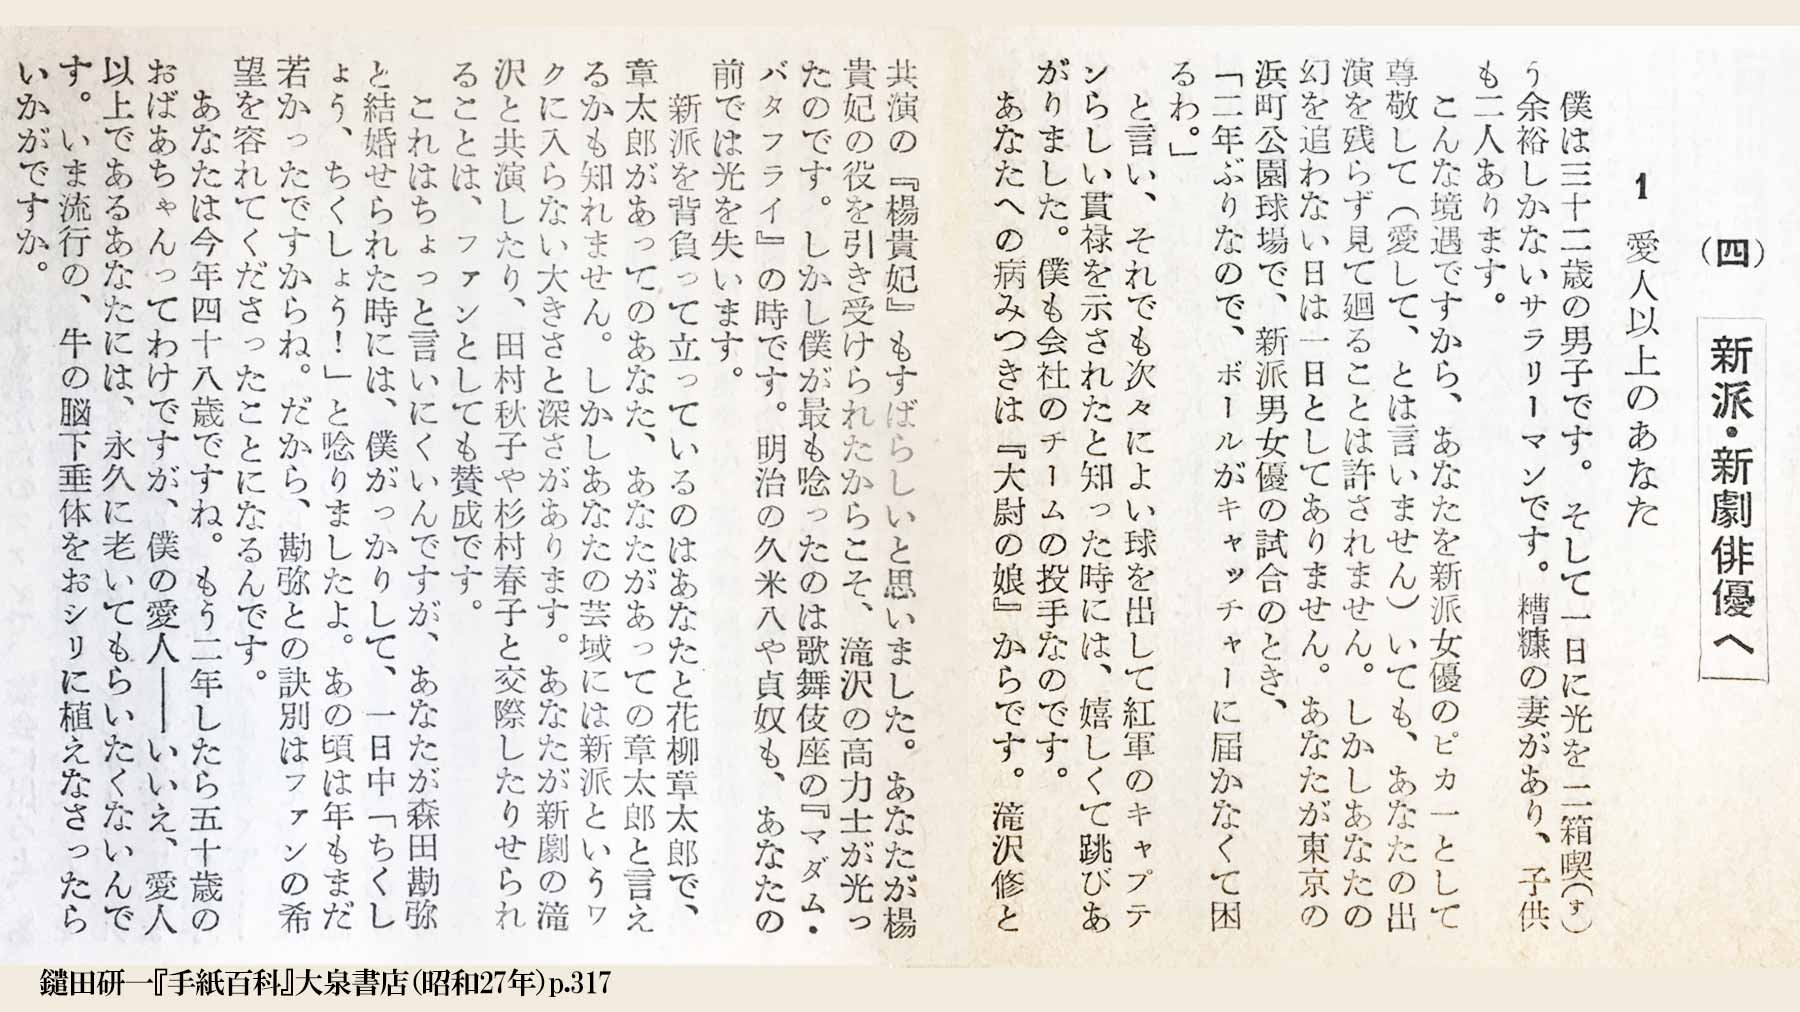 (四) 新派・新劇俳優へ
1 愛人以上のあなた
僕は三十二歳の男子です。そして一日に光を二箱喫(す)
う余裕しかないサラリーマンです。糟糠の妻があり、子供
も二人あります。
こんな境遇ですから、あなたを新派女優のピカ一として
尊敬して(愛して、とは言いません)いても、あなたの出
演を残らず見て廻ることは許されません。しかしあなたの
幻を追わない日は一日としてありません。あなたが東京の
浜町公園球場で、新派男女優の試合のとき、
「二年ぶりなので、ボールがキャッチャーに届かなくて困
るわ。」
と言い、それでも次々によい球を出して紅軍のキャプテ
ンらしい貫禄を示されたと知った時には、嬉しくて跳びあ
がりました。僕も会社のチームの投手なのです。
あなたへの病みつきは『大尉の娘』からです。滝沢修と
共演の『楊貴妃』もすばらしいと思いました。あなたが楊
貴妃の役を引き受けられたからこそ、滝沢の高力士が光っ
たのです。しかし僕が最も唸ったのは歌舞伎座の『マダム・
バタフライ』の時です。明治の久米八や貞奴も、あなたの
前では光を失います。
新派を背負って立っているのはあなたと花柳章太郎で、
章太郎があってのあなた、あなたがあっての章太郎と言え
るかも知れません。しかしあなたの芸域には新派というワ
クに入らない大きさと深さがあります。あなたが新劇の滝
沢と共演したり、田村秋子や杉村春子と交際したりせられ
ることは、ファンとしても賛成です。
これはちょっと言いにくいんですが、あなたが森田勘弥
と結婚せられた時には、僕がっかりして、一日中「ちくし
ょう、ちくしょう!」と唸りましたよ。あの頃は年もまだ
若かったですからね。だから、勘弥との訣別はファンの希
望を容れてくださったことになるんです。
あなたは今年四十八歳ですね。もう二年したら五十歳の
おばあちゃんってわけですが、僕の愛人――いいえ、愛人
以上であるあなたには、永久に老いてもらいたくないんで
す。いま流行の、牛の脳下垂体をおシリに植えなさったら
いかがですか。
鑓田研一『手紙百科』大泉書店(昭和27年)p.317